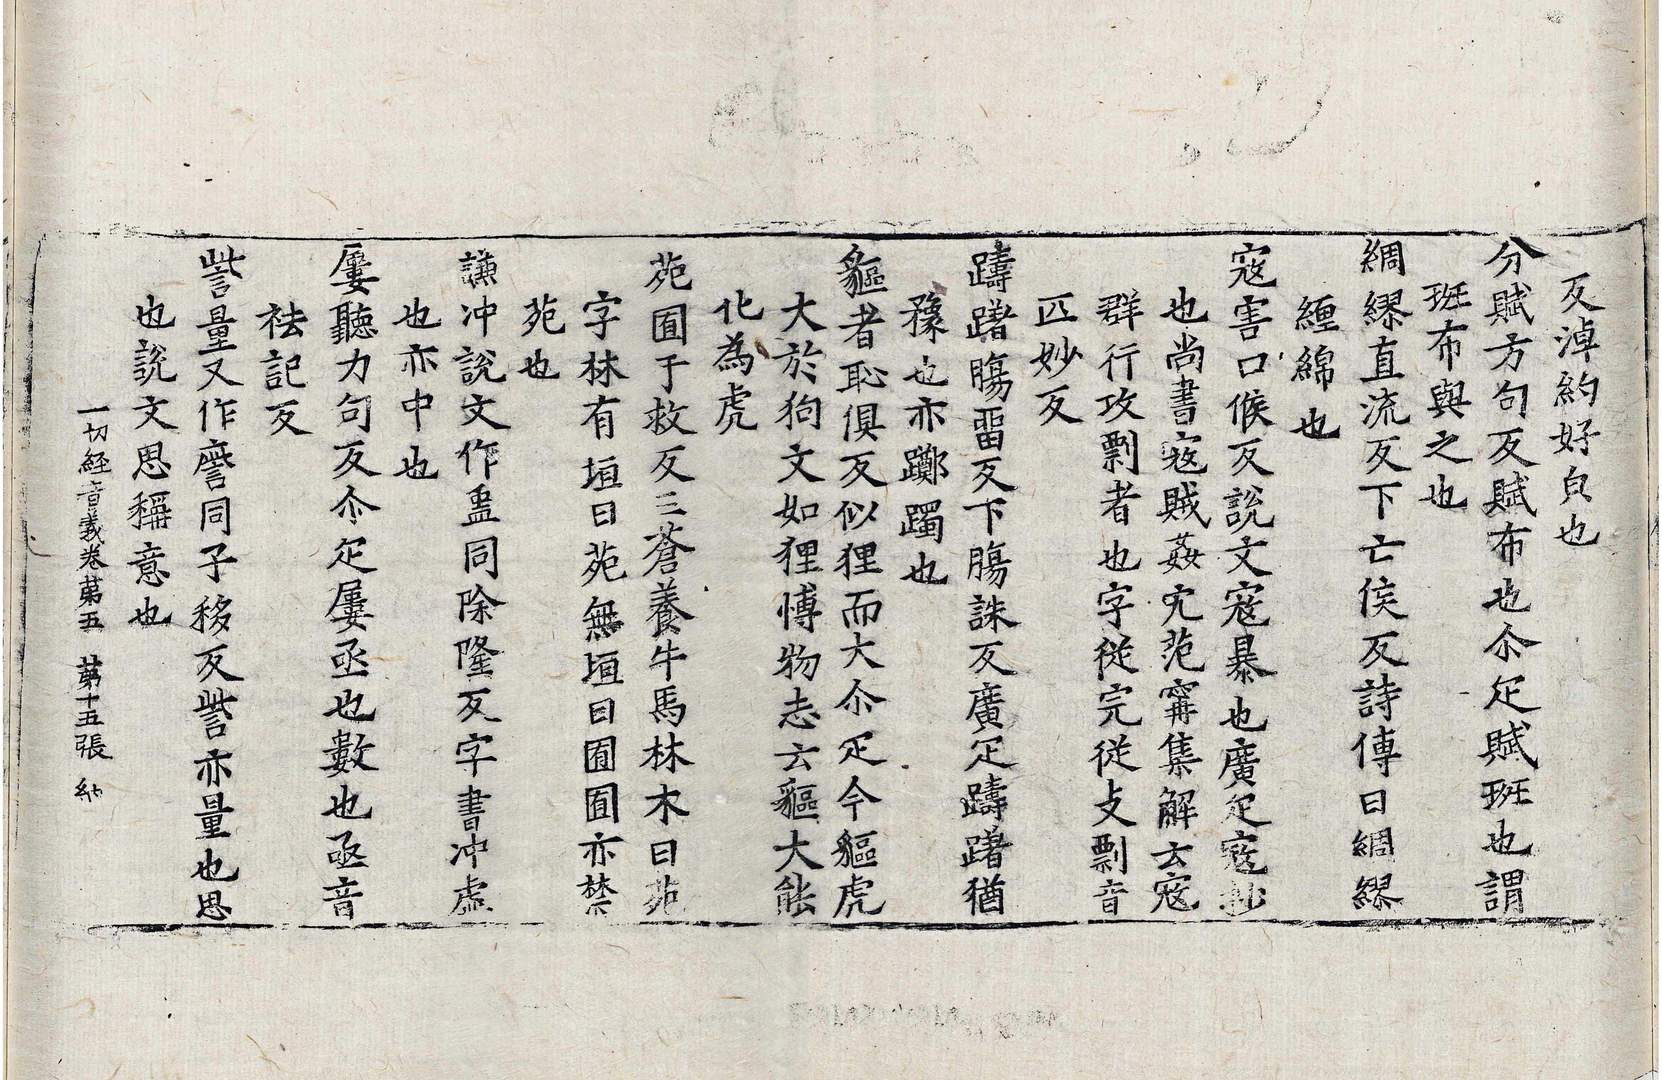 反淖約好皃也
分賦方句反賦布也尒疋賦班也謂
班布與之也
綢繆直流反下亡侯反詩傳曰綢繆
纏綿也
寇害口候反說文寇暴也廣疋寇抄
也尚書寇賊姦宄范甯集解云寇
群行攻剽者也字從完從攴剽音
匹妙反
躊躇腸留反下腸誅反廣疋躊躇猶
豫也亦躑躅也
貙者恥俱反似狸而大尒疋今貙虎
大於狗文如狸博物志云貙大能
化為虎
苑囿于救反三蒼養牛馬林木曰苑
字林有垣曰苑無垣曰囿囿亦禁
苑也
謙冲說文作盅同除隆反字書冲虛
也亦中也
屢聽力句反尒疋屢亟也數也亟音
袪記反
訾量又作㱯同子移反訾亦量也思
也說文思稱意也
一切經音義卷苐五 苐十五張 納